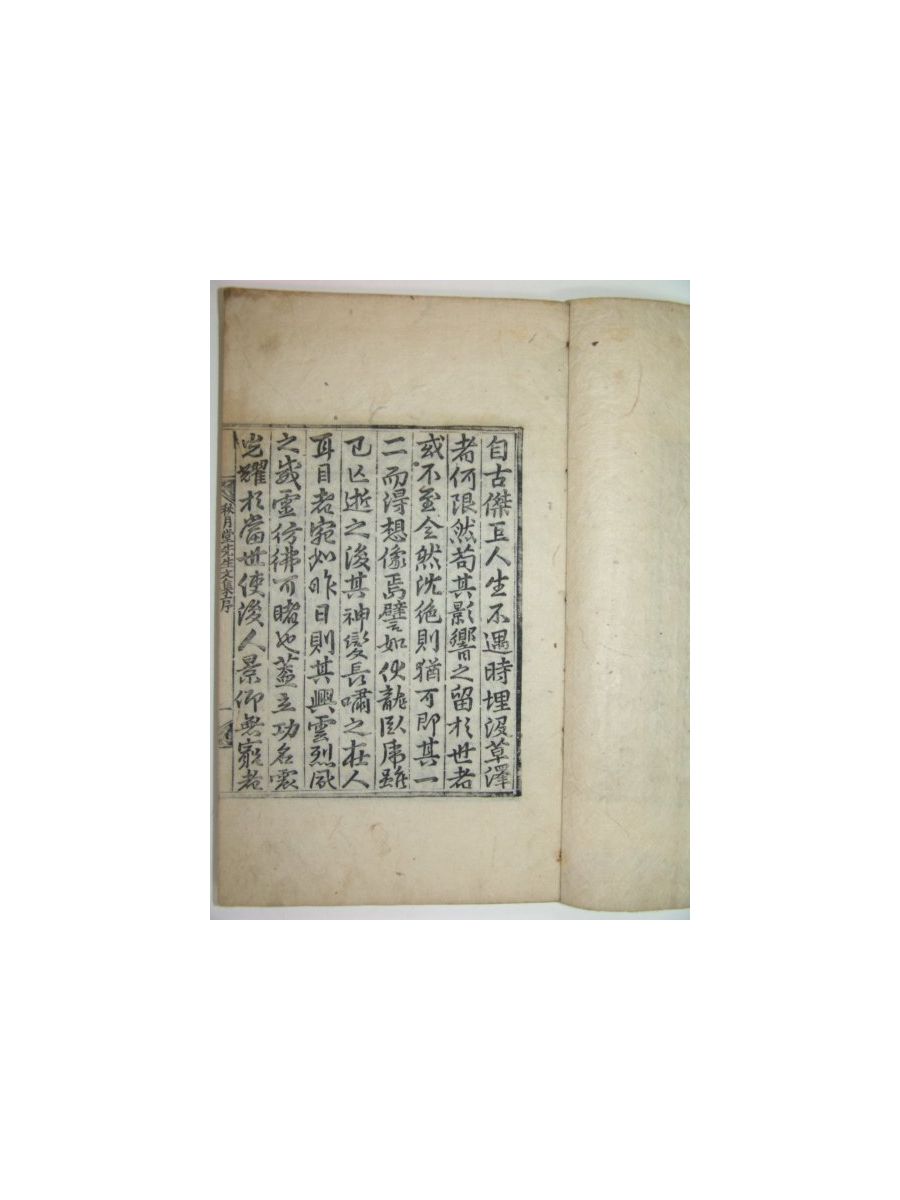 自古傑巨人生不遇時埋没草澤
者何限然苟其影響之留於世者
或不至全然沈絶則猶可即其一
二而得想像焉譬如伏龍臥虎雖
已亡逝之後其神變長嘯之在人
耳目者宛如昨日則其興雲烈風
之威靈彷彿可睹也盖立功名震
光耀於當世使後人景仰無窮者
秋月堂先生文集序
一